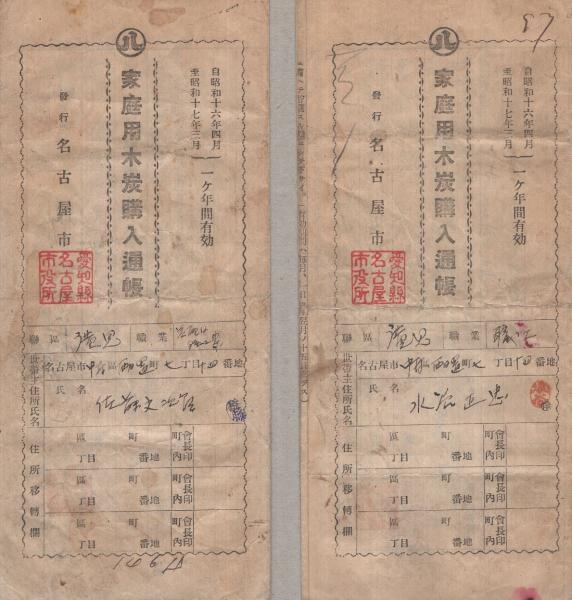 八
自昭和十六年四月
至昭和十七年三月
一ケ年間有効
家庭用木炭購入通帳
發行 名古屋市
愛知縣
名古屋
市役所
聯區
職業
世帯主住所氏名
名古屋市中區 町七丁目十四番地
氏名
住所移轉欄
區 町
丁目 番地
町内會長印
區 町
丁目 番地
町内會長印
區 町
丁目 番地
町内會長印
97
八
自昭和十六年四月
至昭和十七年三月
一ケ年間有効
家庭用木炭購入通帳
發行 名古屋市
愛知縣
名古屋
市役所
聯區
職業
世帯主住所氏名
名古屋市中區 町七丁目十四番地
氏名
正忠
住所移轉欄
區 町
丁目 番地
町内會長印
區 町
丁目 番地
町内會長印
區 町
丁目 番地
町内會長印